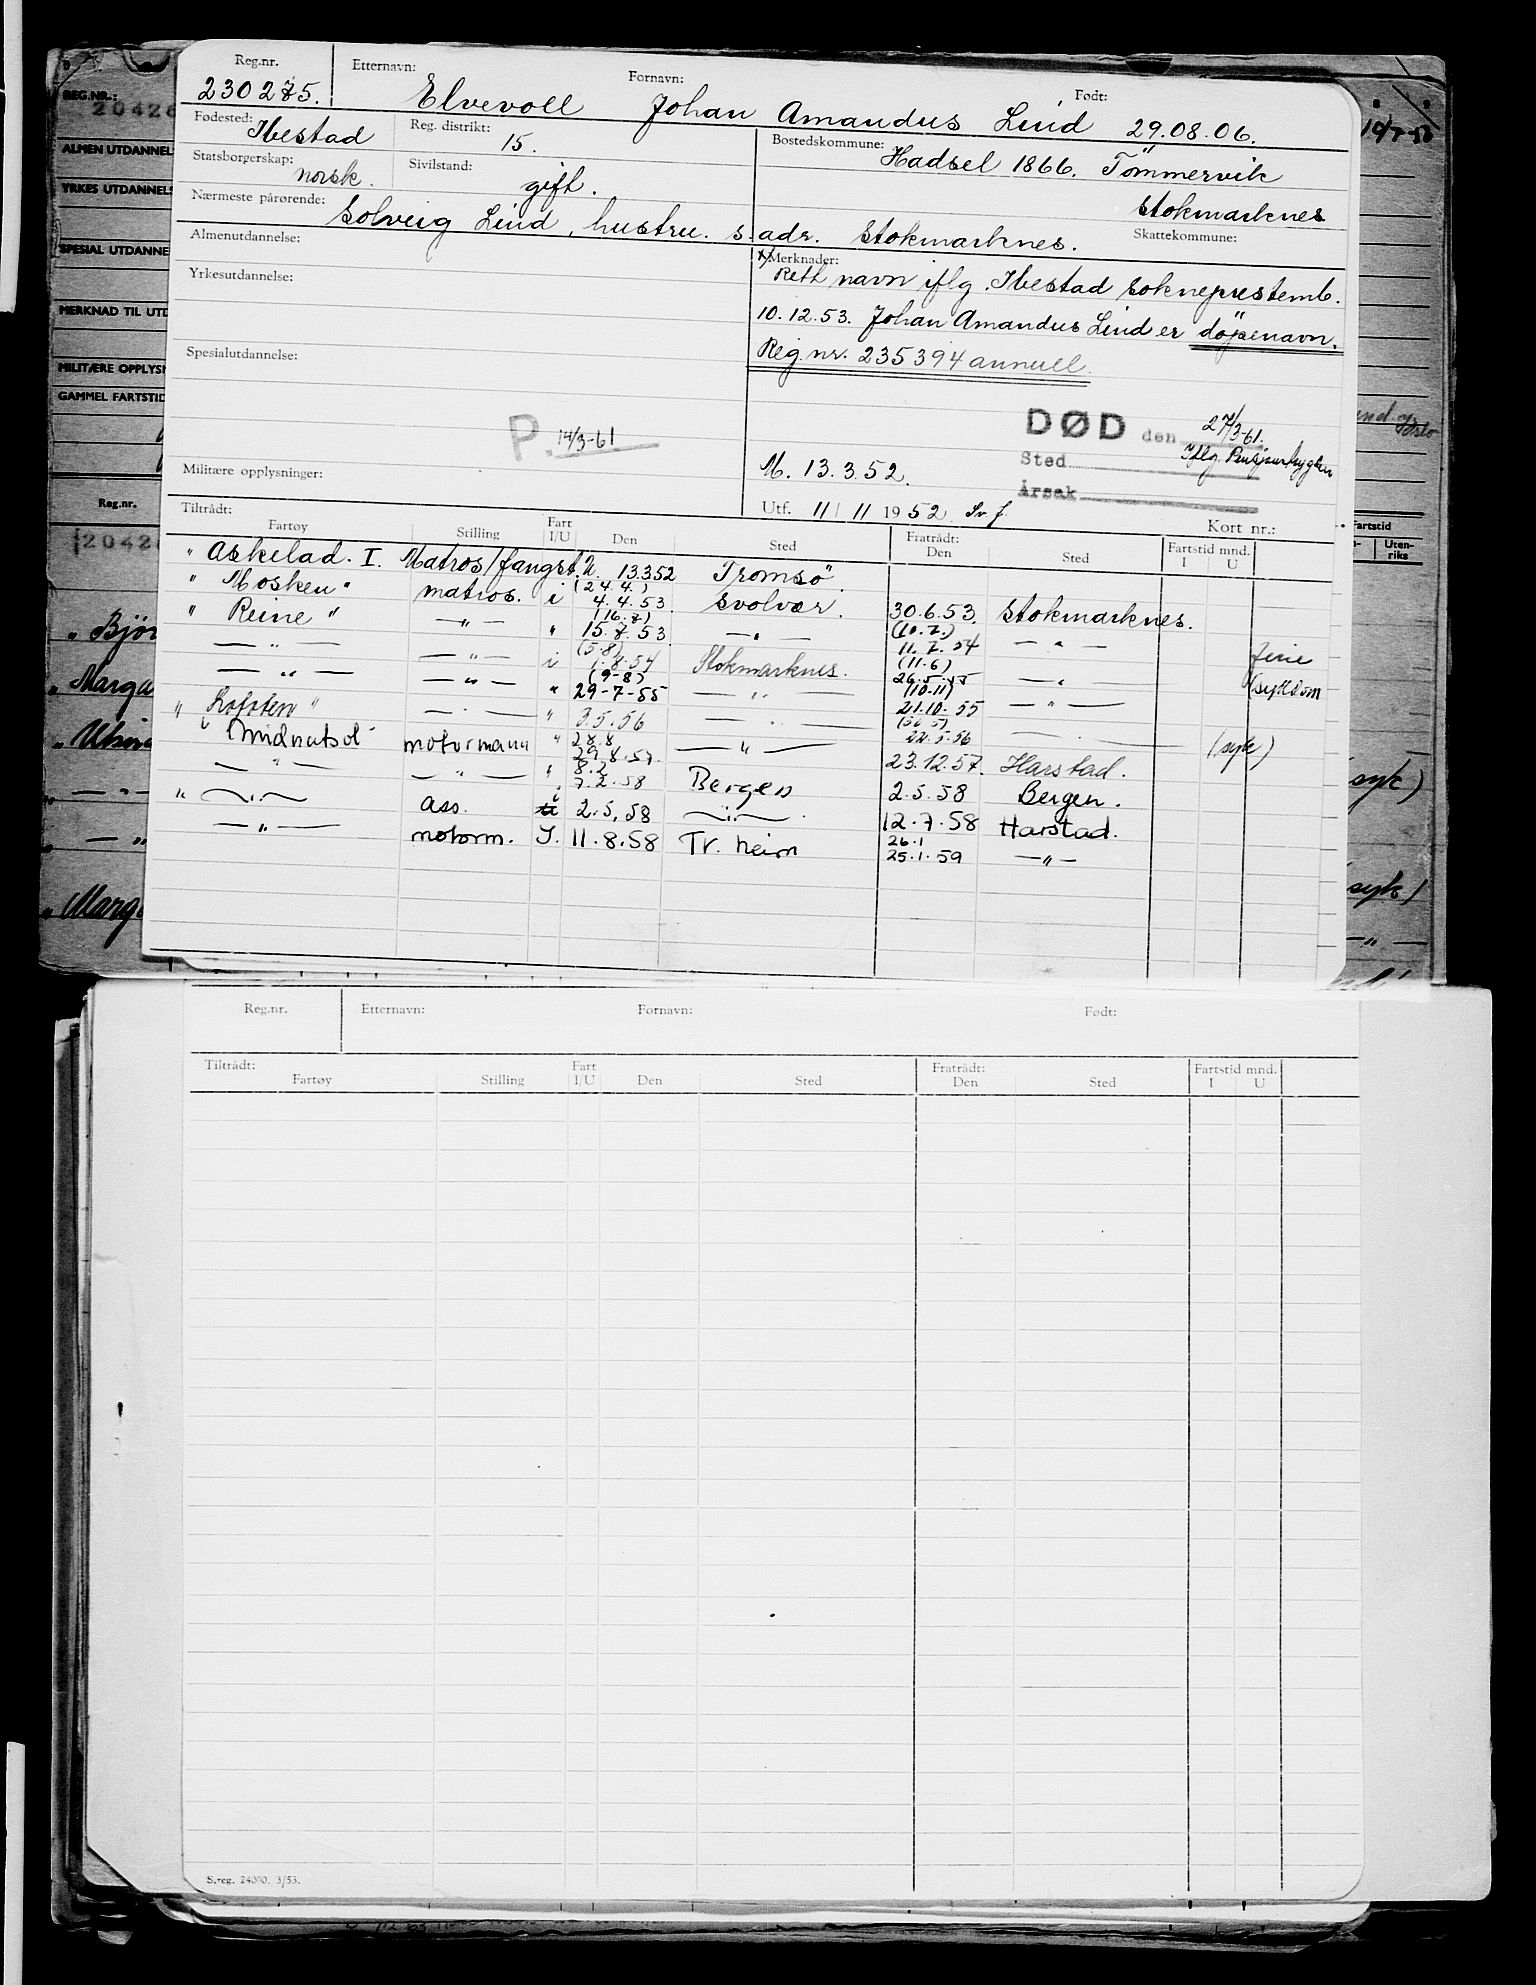 Reg.nr. Etternavn: Fornavn: Født:
230275. Elvevoll Johan Amandus Lind 29.08.06.
Fødested: Ibestad Reg. distrikt: 15. Bostedskommune: Hadsel 1866. Tömmervik
Statsborgerskap: norsk. Sivilstand: gift. Stokmarknes
Nærmeste pårørende: Solveig Lind, hustru. s. adr. Stokmarknes. Skattekommune:
Almenutdannelse: Merknader:
Yrkesutdannelse: x/ Rett navn iflg. Ibestad sokneprestemb.
10.12.53. Johan Amandus Lind er döpenavn.
Spesialutdannelse: Reg.nr. 235394 annull.
P. 14/3-61 DØD den 27/3-61.
Sted Iflg
Militære opplysninger: M. 13.3.52. Årsak
Utf. 11/11 1952 Sv.f. Kort nr.:
Tiltrådt: Fartøy Stilling Fart I/U Den Sted Fratrådt: Den Sted Fartstid mnd. I U
" Askelad. I. Matros/fangst. U. 13.3.52 Tromsö.
" Mosken " matros. i (24.4.) 4.4.53 Svolvær. 30.6.53. Stokmarknes.
" Reine " — " — " (16.7) 15.7.53 — " — (10.7.) 11.7.54 — " — ferie
— " — — " — i (5.8) 1.8.54 Stokmarknes. (11.6) 26.5.55 — " — (sykdom
— " — — " — " (9-8) 29-7-55 — " — (10-11) 21.10.55 — " —
" Lofoten " — " — " 3.5.56 — " — 22.5.56 — " — (syk)
" Midnatsol motormann " 28.8 29.8.57. — " — 23.12.57. Harstad.
— " — — " — " 8.2 7.2.58 Bergen 2.5.58 Bergen.
" — " — ass. i 2.5.58 — " — 12.7.58 Harstad.
— " — motorm. I. 11.8.58 Tr.heim 26.1 25.1.59 — " —
REG.NR.: 2042
ALMEN UTDANNEL
YRKES UTDANNELS
SPESIAL UTDANNE
MERKNAD TIL UTD
MILITÆRE OPPLYSN
GAMMEL FARTSTID
Reg.nr.
2042
" Bjør
" Marga
" Utsir
— " —
— "
" Marg
Fartstid
Uten-riks
syk)
syk)
— " —
Reg.nr. Etternavn: Fornavn: Født:
Tiltrådt: Fartøy Stilling Fart I/U Den Sted Fratrådt: Den Sted Fartstid mnd. I U
S.reg. 24000. 3/53.